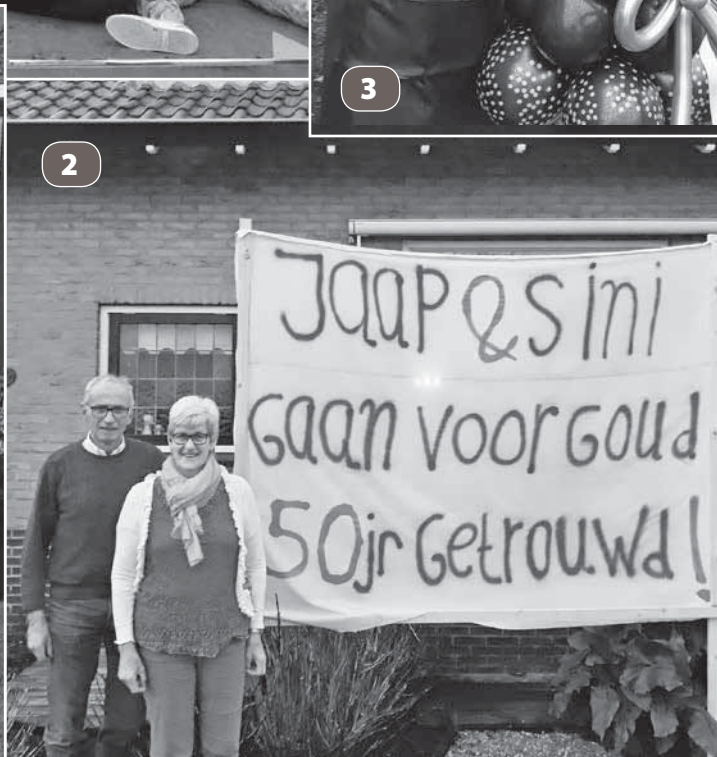 3
2
Jaap & Sini
Gaan voor Goud
50jr Getrouwd!